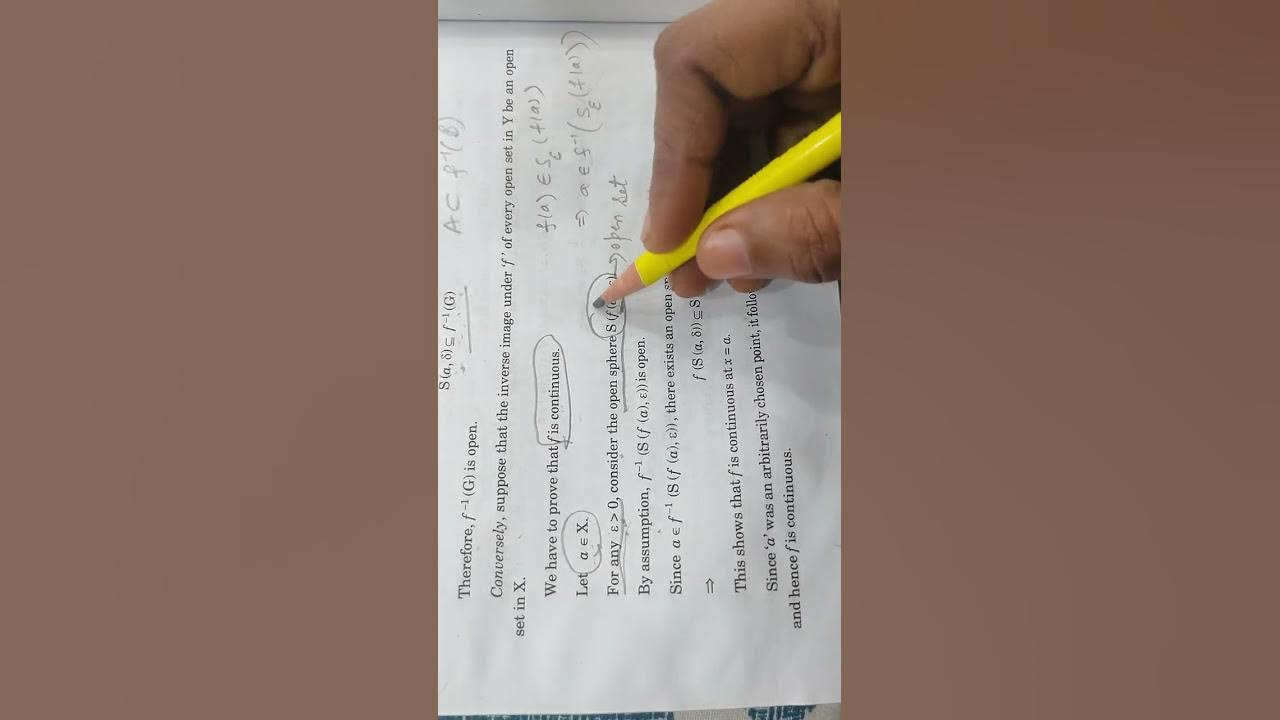 S (a, δ) ⊆ f⁻¹ (G) A ⊂ f⁻¹(B)
Therefore, f⁻¹ (G) is open.
Conversely, suppose that the inverse image under 'f' of every open set in Y be an open
set in X.
We have to prove that f is continuous. f(a) ∈ S_ε (f(a))
Let a ∈ X. ⇒ a ∈ f⁻¹ (S_ε (f(a)))
For any ε > 0, consider the open sphere S (f → open set
By assumption, f⁻¹ (S (f (a), ε)) is open.
Since a ∈ f⁻¹ (S (f (a), ε)), there exists an open
⇒ f (S (a, δ)) ⊆ S
This shows that f is continuous at x = a.
Since 'a' was an arbitrarily chosen point, it
and hence f is continuous.